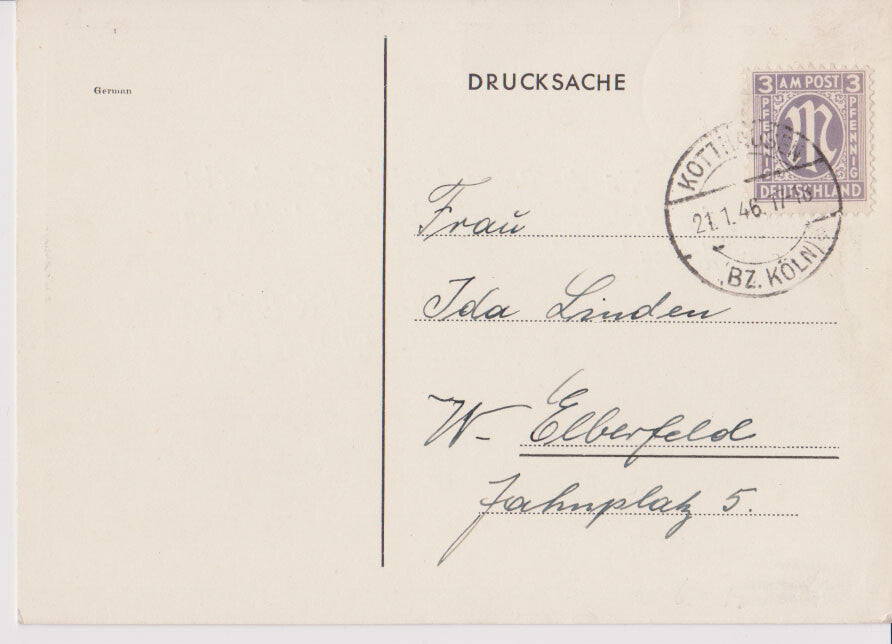 German
DRUCKSACHE
3 AM POST 3
PFENNIG
PFENNIG
DEUTSCHLAND
KOTTHAUSEN
21.1.46. 17-18
(BZ. KÖLN)
Frau
Ida Linden
W- Elberfeld
Jahnplatz 5.